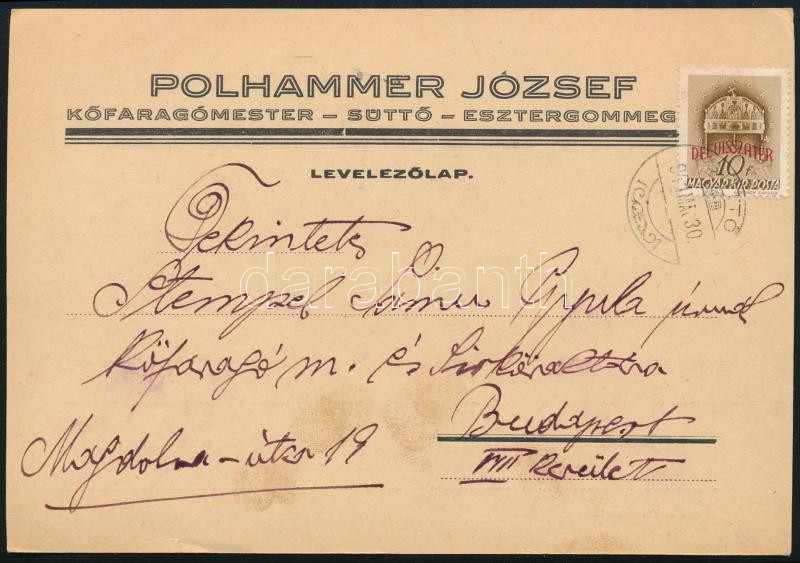 POLHAMMER JÓZSEF
KŐFARAGÓMESTER – SÜTTŐ – ESZTERGOMMEG
LEVELEZŐLAP.
DÉL VISSZATÉR
10 f
MAGYAR KIR. POSTA
MÁJ. 30.
Tekintetes
Stempel Gyula úrnak
Kőfaragó m. és Sírkőraktára
Budapest
VIII kerület
Magdolna-utca 19
darabanth